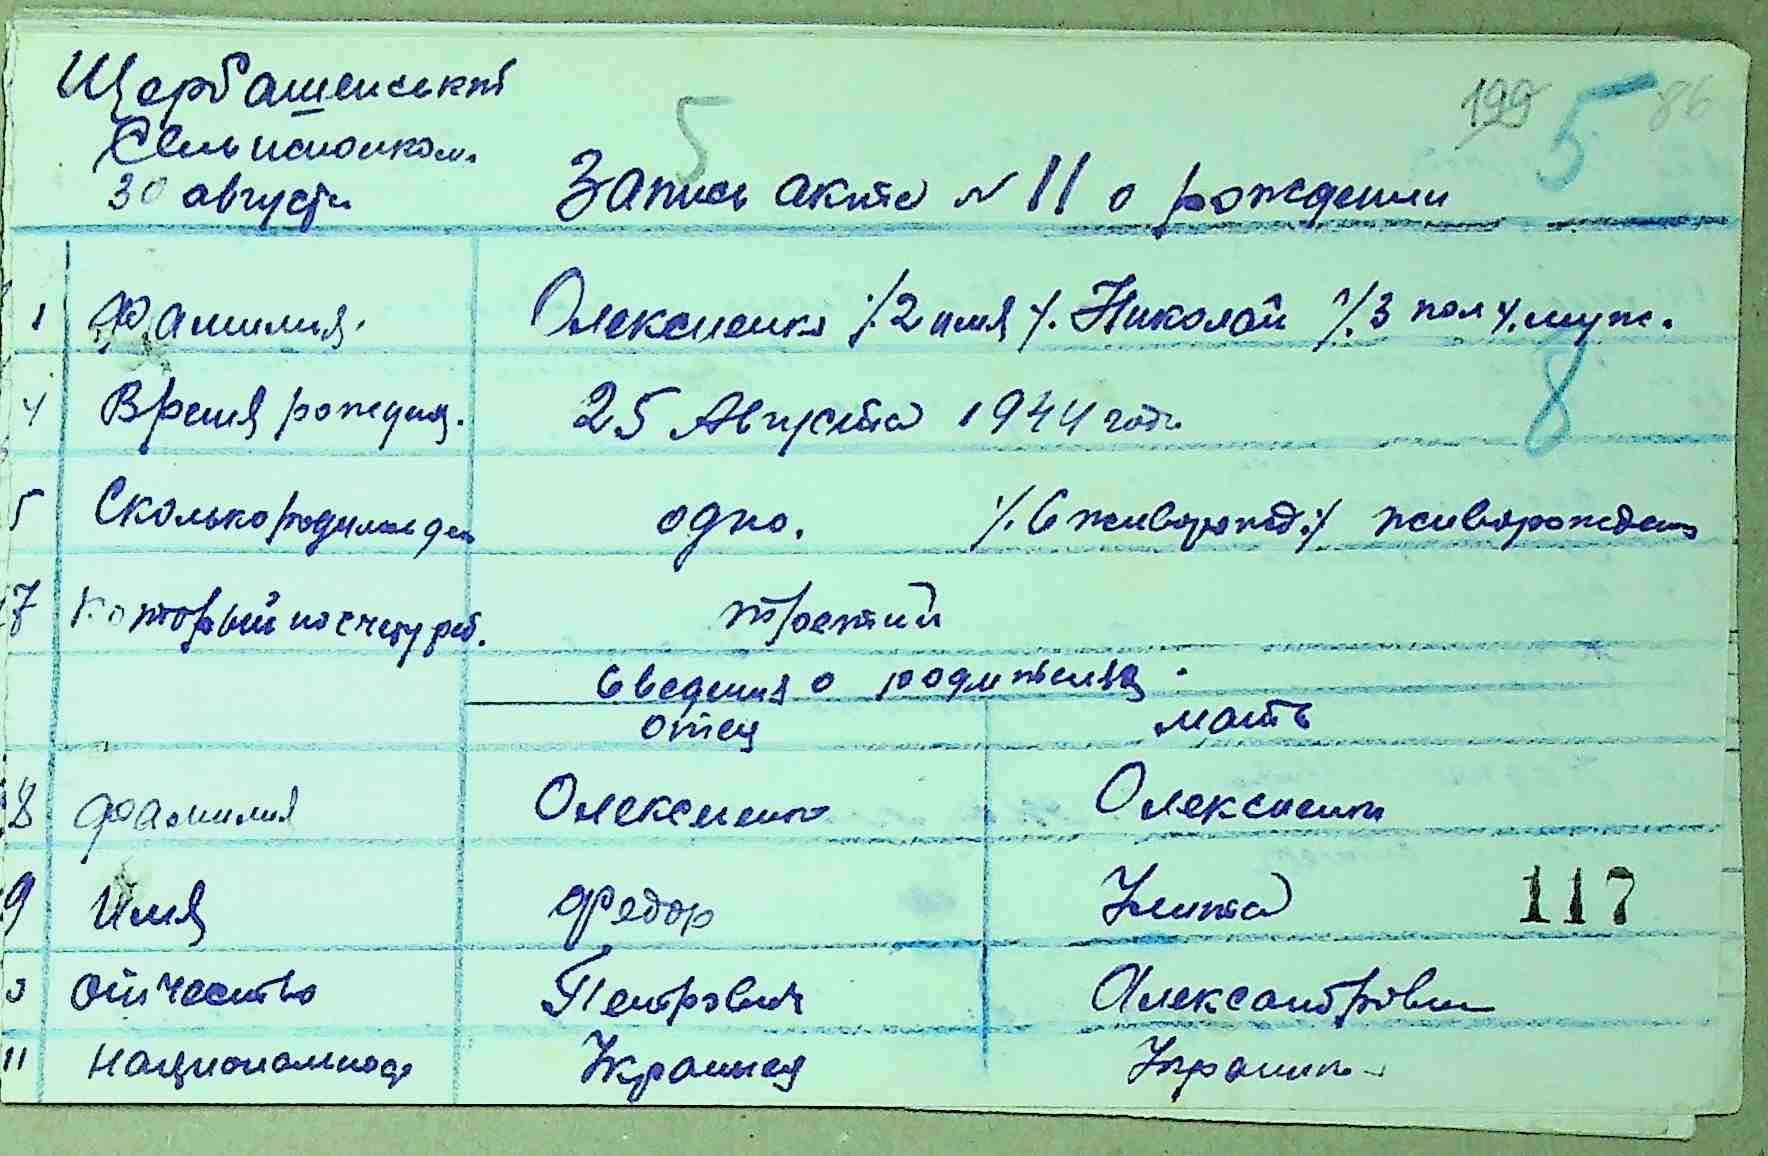 Щербашенский
Сельисполком.
30 августа
5
199 5 86
Запись акта N 11 о рождении
1 Фамилия. Олексиенко /. 2 имя /. Николай /. 3 пол /. муж.
8
4 Время рождения. 25 Августа 1944 года
5 Сколько родилось дет одно. /. 6 живорожд. /. живорожден
7 Который по счету реб. третий
Сведения о родителях.
отец мать
8 Фамилия Олексиенко Олексиенко
9 Имя Федор 117
Отчество Петрович Александровн
11 национальность Украинец Украинк